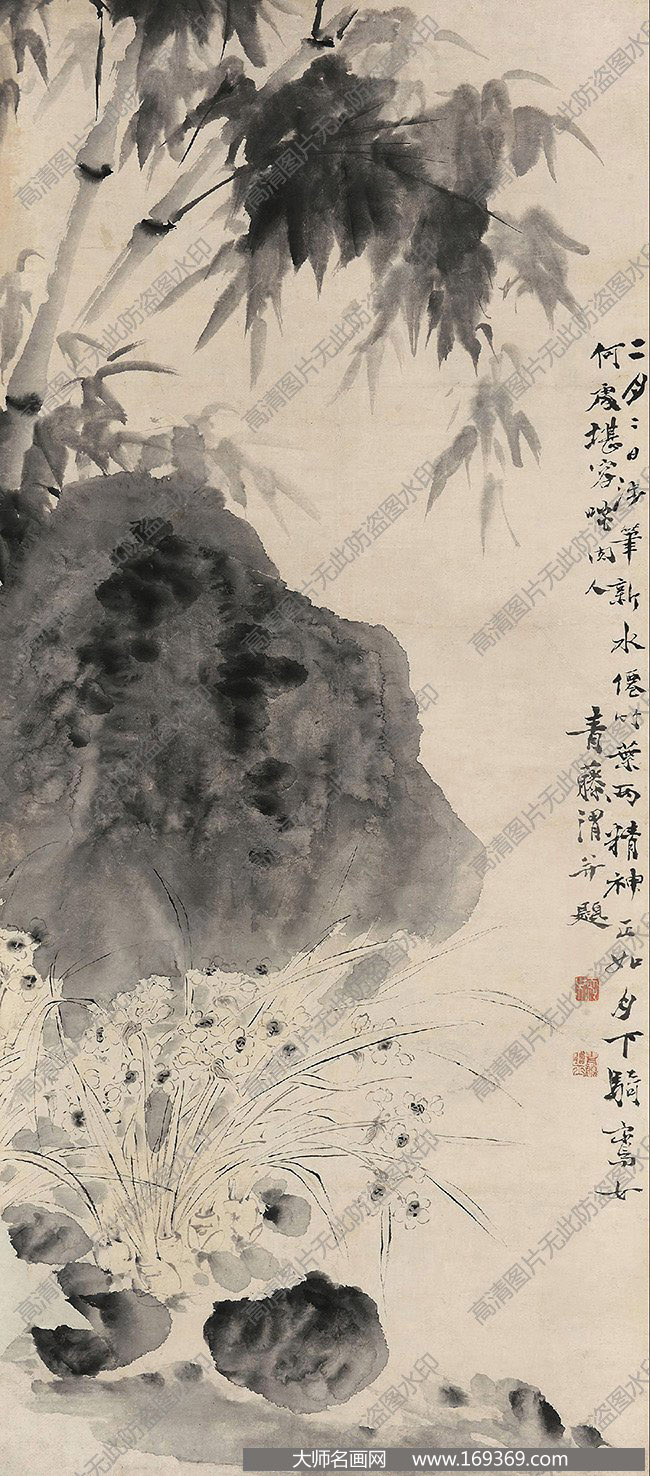 二月二日涉筆新水僊竹葉兩精神正如月下騎鸞女
何處堪容啖肉人
青藤渭并題
高清图片无此防盗图水印
大师名画网 www.169369.com